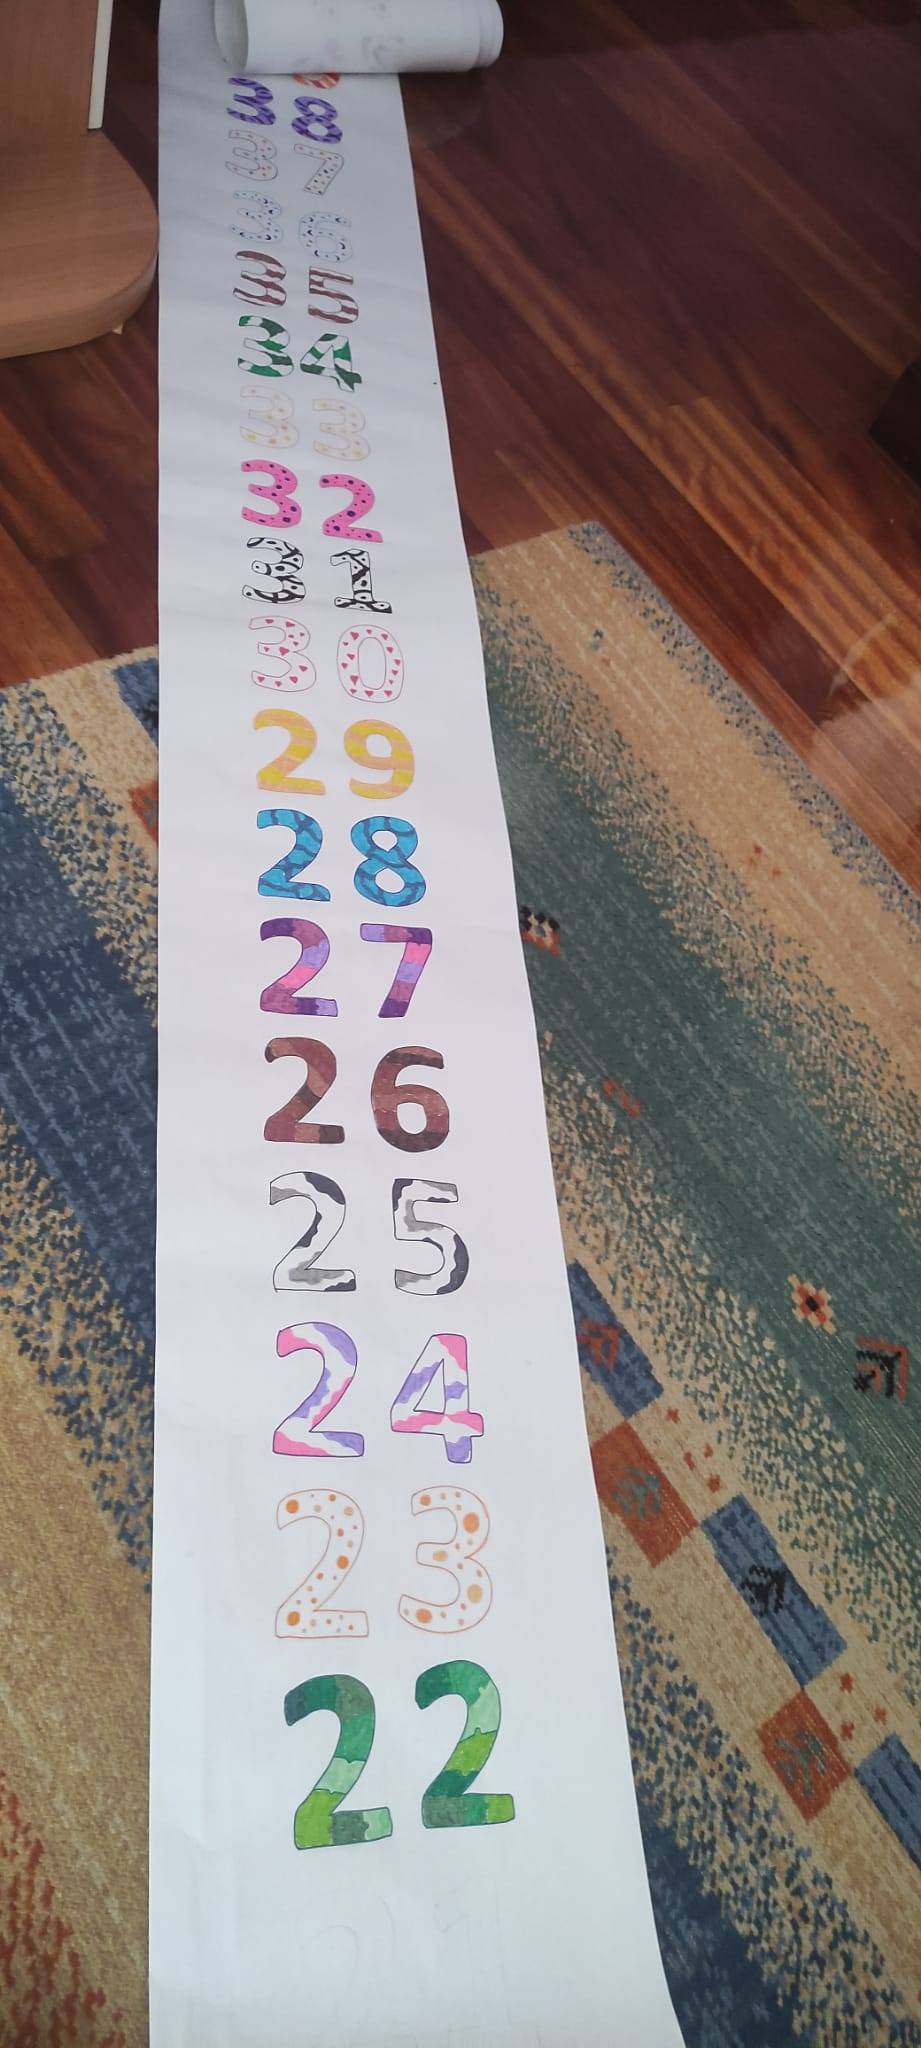 38
37
36
35
34
33
32
31
30
29
28
27
26
25
24
23
22